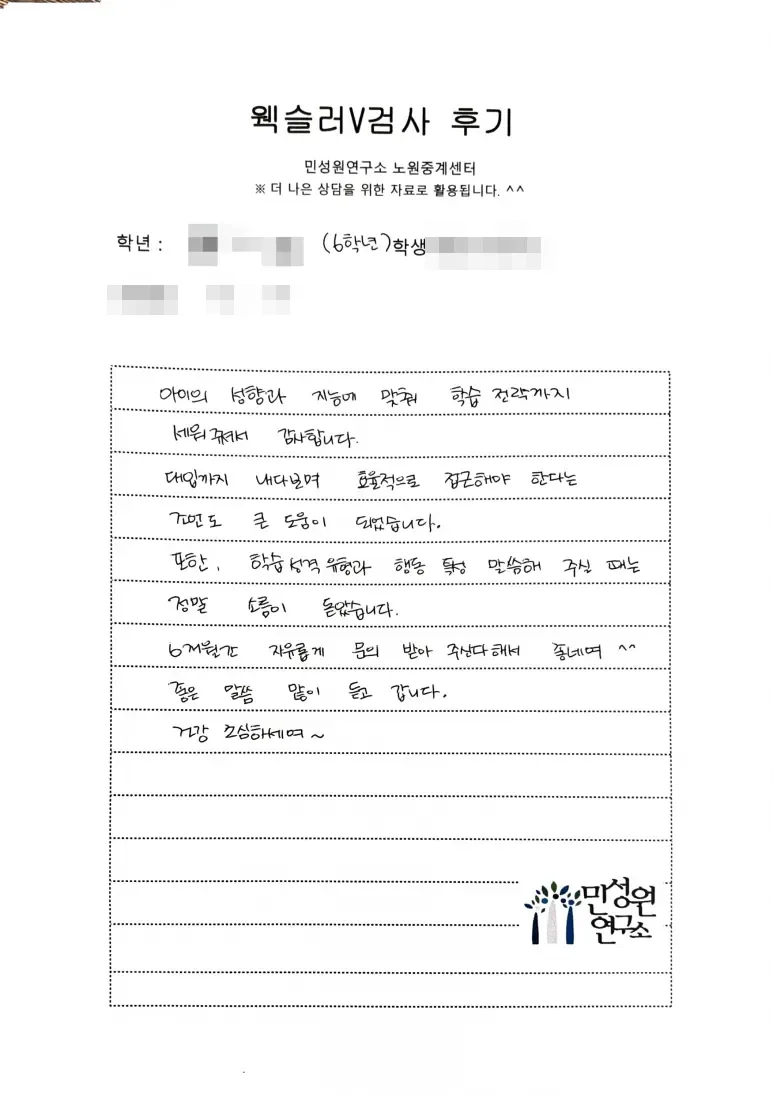 웩슬러V검사 후기
민성원연구소 노원중계센터
※ 더 나은 상담을 위한 자료로 활용됩니다. ^^
학년 : (6학년)학생
아이의 성향과 지능에 맞춰 학습 전략까지
세워주셔서 감사합니다.
대입까지 내다보며 효율적으로 접근해야 한다는
조언도 큰 도움이 되었습니다.
또한, 학습성격유형과 행동 특성 말씀해 주실 때는
정말 소름이 돋았습니다.
6개월간 자유롭게 문의 받아 주신다해서 좋네여 ^^
좋은 말씀 많이 듣고 갑니다.
건강 조심하세여~
민성원
연구소